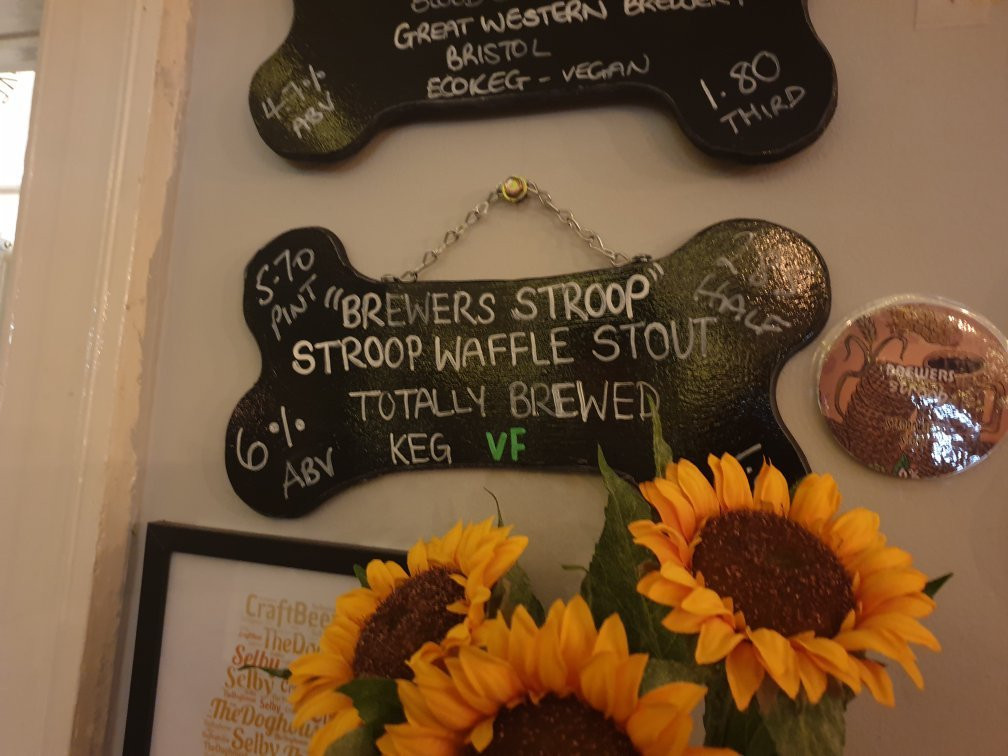 GREAT WESTERN BREWERY
BRISTOL
ECOKEG - VEGAN
ABV
1.80
THIRD
5.70
PINT
HALF
"BREWERS STROOP"
STROOPWAFFLE STOUT
TOTALLY BREWED
KEG VF
6%
ABV
1.
BREWERS
CraftBee
TheDo
Selby
Selby
Selby
TheDogh
Selby